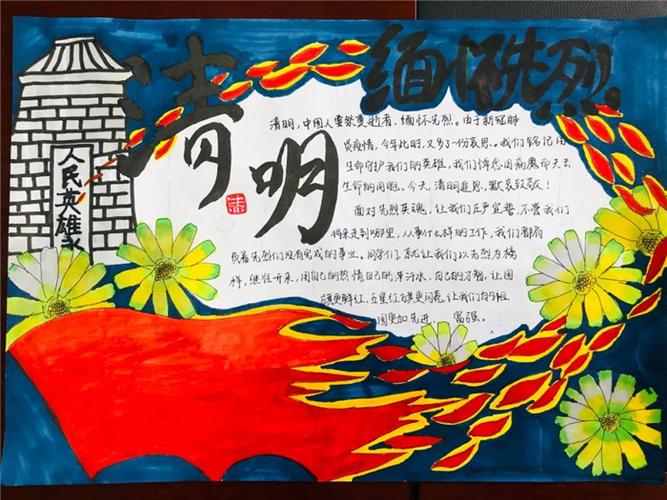 清明
缅怀先烈
人民英雄永
清明，中国人重祭奠逝者，缅怀先烈。由于新冠肺
炎疫情，今年此时，又多了一份哀思。我们铭记用
生命守护我们的英雄，我们悼念因病魔而失去
生命的同胞。今天，清明追思，默哀致敬！
面对先烈英魂，让我们庄严宣誓，不管我们
将来走到哪里，从事什么样的工作，我们都肩
负着先烈们没有完成的事业。同学们，就让我们以先烈为榜
样，继往开来，用自己的热情自己的汗水，自己的才智，让国
旗更鲜红，五星红旗更闪亮，让我们的祖
国更加先进、富强。